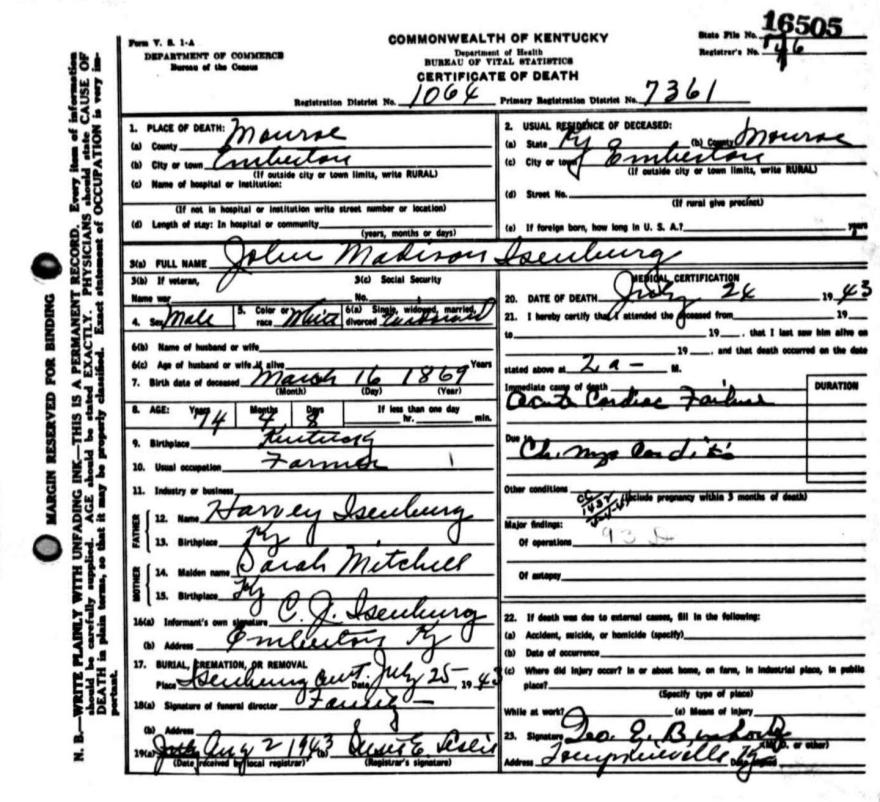 MARGIN RESERVED FOR BINDING
N. B.—WRITE PLAINLY WITH UNFADING INK—THIS IS A PERMANENT RECORD. Every item of information
should be carefully supplied. AGE should be stated EXACTLY. PHYSICIANS should state CAUSE OF
DEATH in plain terms, so that it may be properly classified. Exact statement of OCCUPATION is very im-
portant.
Form V. S. 1-A
DEPARTMENT OF COMMERCE
Bureau of the Census
COMMONWEALTH OF KENTUCKY
Department of Health
BUREAU OF VITAL STATISTICS
CERTIFICATE OF DEATH
State File No. 16505
Registrar's No.
Registration District No. 1064 Primary Registration District No. 7361
1. PLACE OF DEATH:
(a) County Monroe
(b) City or town Emberton
(If outside city or town limits, write RURAL)
(c) Name of hospital or institution:
(If not in hospital or institution write street number or location)
(d) Length of stay: In hospital or community
(years, months or days)
2. USUAL RESIDENCE OF DECEASED:
(a) State Ky (b) County Monroe
(c) City or town Emberton
(If outside city or town limits, write RURAL)
(d) Street No.
(If rural give precinct)
(e) If foreign born, how long in U. S. A.? years
3(a) FULL NAME John Madison Isenburg
3(b) If veteran,
Name war
3(c) Social Security
No.
4. Sex Male
5. Color or
race White
6(a) Single, widowed, married,
divorced
6(b) Name of husband or wife
6(c) Age of husband or wife if alive Years
7. Birth date of deceased March 16 1869
(Month) (Day) (Year)
8. AGE: Years 74 Months 4 Days 8 If less than one day
hr. min.
9. Birthplace Kentucky
10. Usual occupation Farmer
11. Industry or business
FATHER
12. Name Harvey Isenburg
13. Birthplace Ky
MOTHER
14. Maiden name Sarah Mitchell
15. Birthplace Ky
16(a) Informant's own signature C. J. Isenburg
(b) Address Emberton Ky
17. BURIAL, CREMATION, OR REMOVAL
Place Isenburg Date July 25, 1943
18(a) Signature of funeral director Family
(b) Address
19(a) Aug 2 1943 (b) Susie E Leslie
(Date received by local registrar) (Registrar's signature)
MEDICAL CERTIFICATION
20. DATE OF DEATH July 24 1943
21. I hereby certify that I attended the deceased from 19
to 19, that I last saw him alive on
19, and that death occurred on the date
stated above at 2 a M.
Immediate cause of death
Acute Cardiac Failure
DURATION
Due to
Ch. Myocarditis
Other conditions
(Include pregnancy within 3 months of death)
Major findings:
Of operations 93 D
Of autopsy
22. If death was due to external causes, fill in the following:
(a) Accident, suicide, or homicide (specify)
(b) Date of occurrence
(c) Where did injury occur? In or about home, on farm, in industrial place, in public
place?
(Specify type of place)
While at work? (e) Means of injury
23. Signature Geo. E. Bushong
(M. D. or other)
Address Tompkinsville Ky Date signed